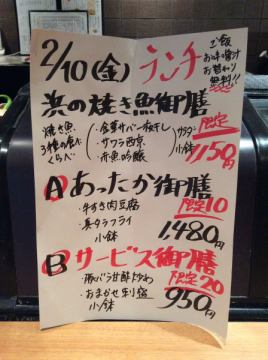 2/10(金) ランチ
ご飯
お味噌汁
お替わり
無料!!
浜の焼き魚御膳
焼き魚
3種の食べ
くらべ
・金華サバ一夜干し
・サワラ西京
・赤魚吟醸
サラダ
小鉢
限定
1150円
A あったか御膳
限定10
・牛すき肉豆腐
・真タラフライ
小鉢
1,480円
B サービス御膳
限定20
・豚バラ甘酢炒め
・おまかせお刺宿
小鉢
950円